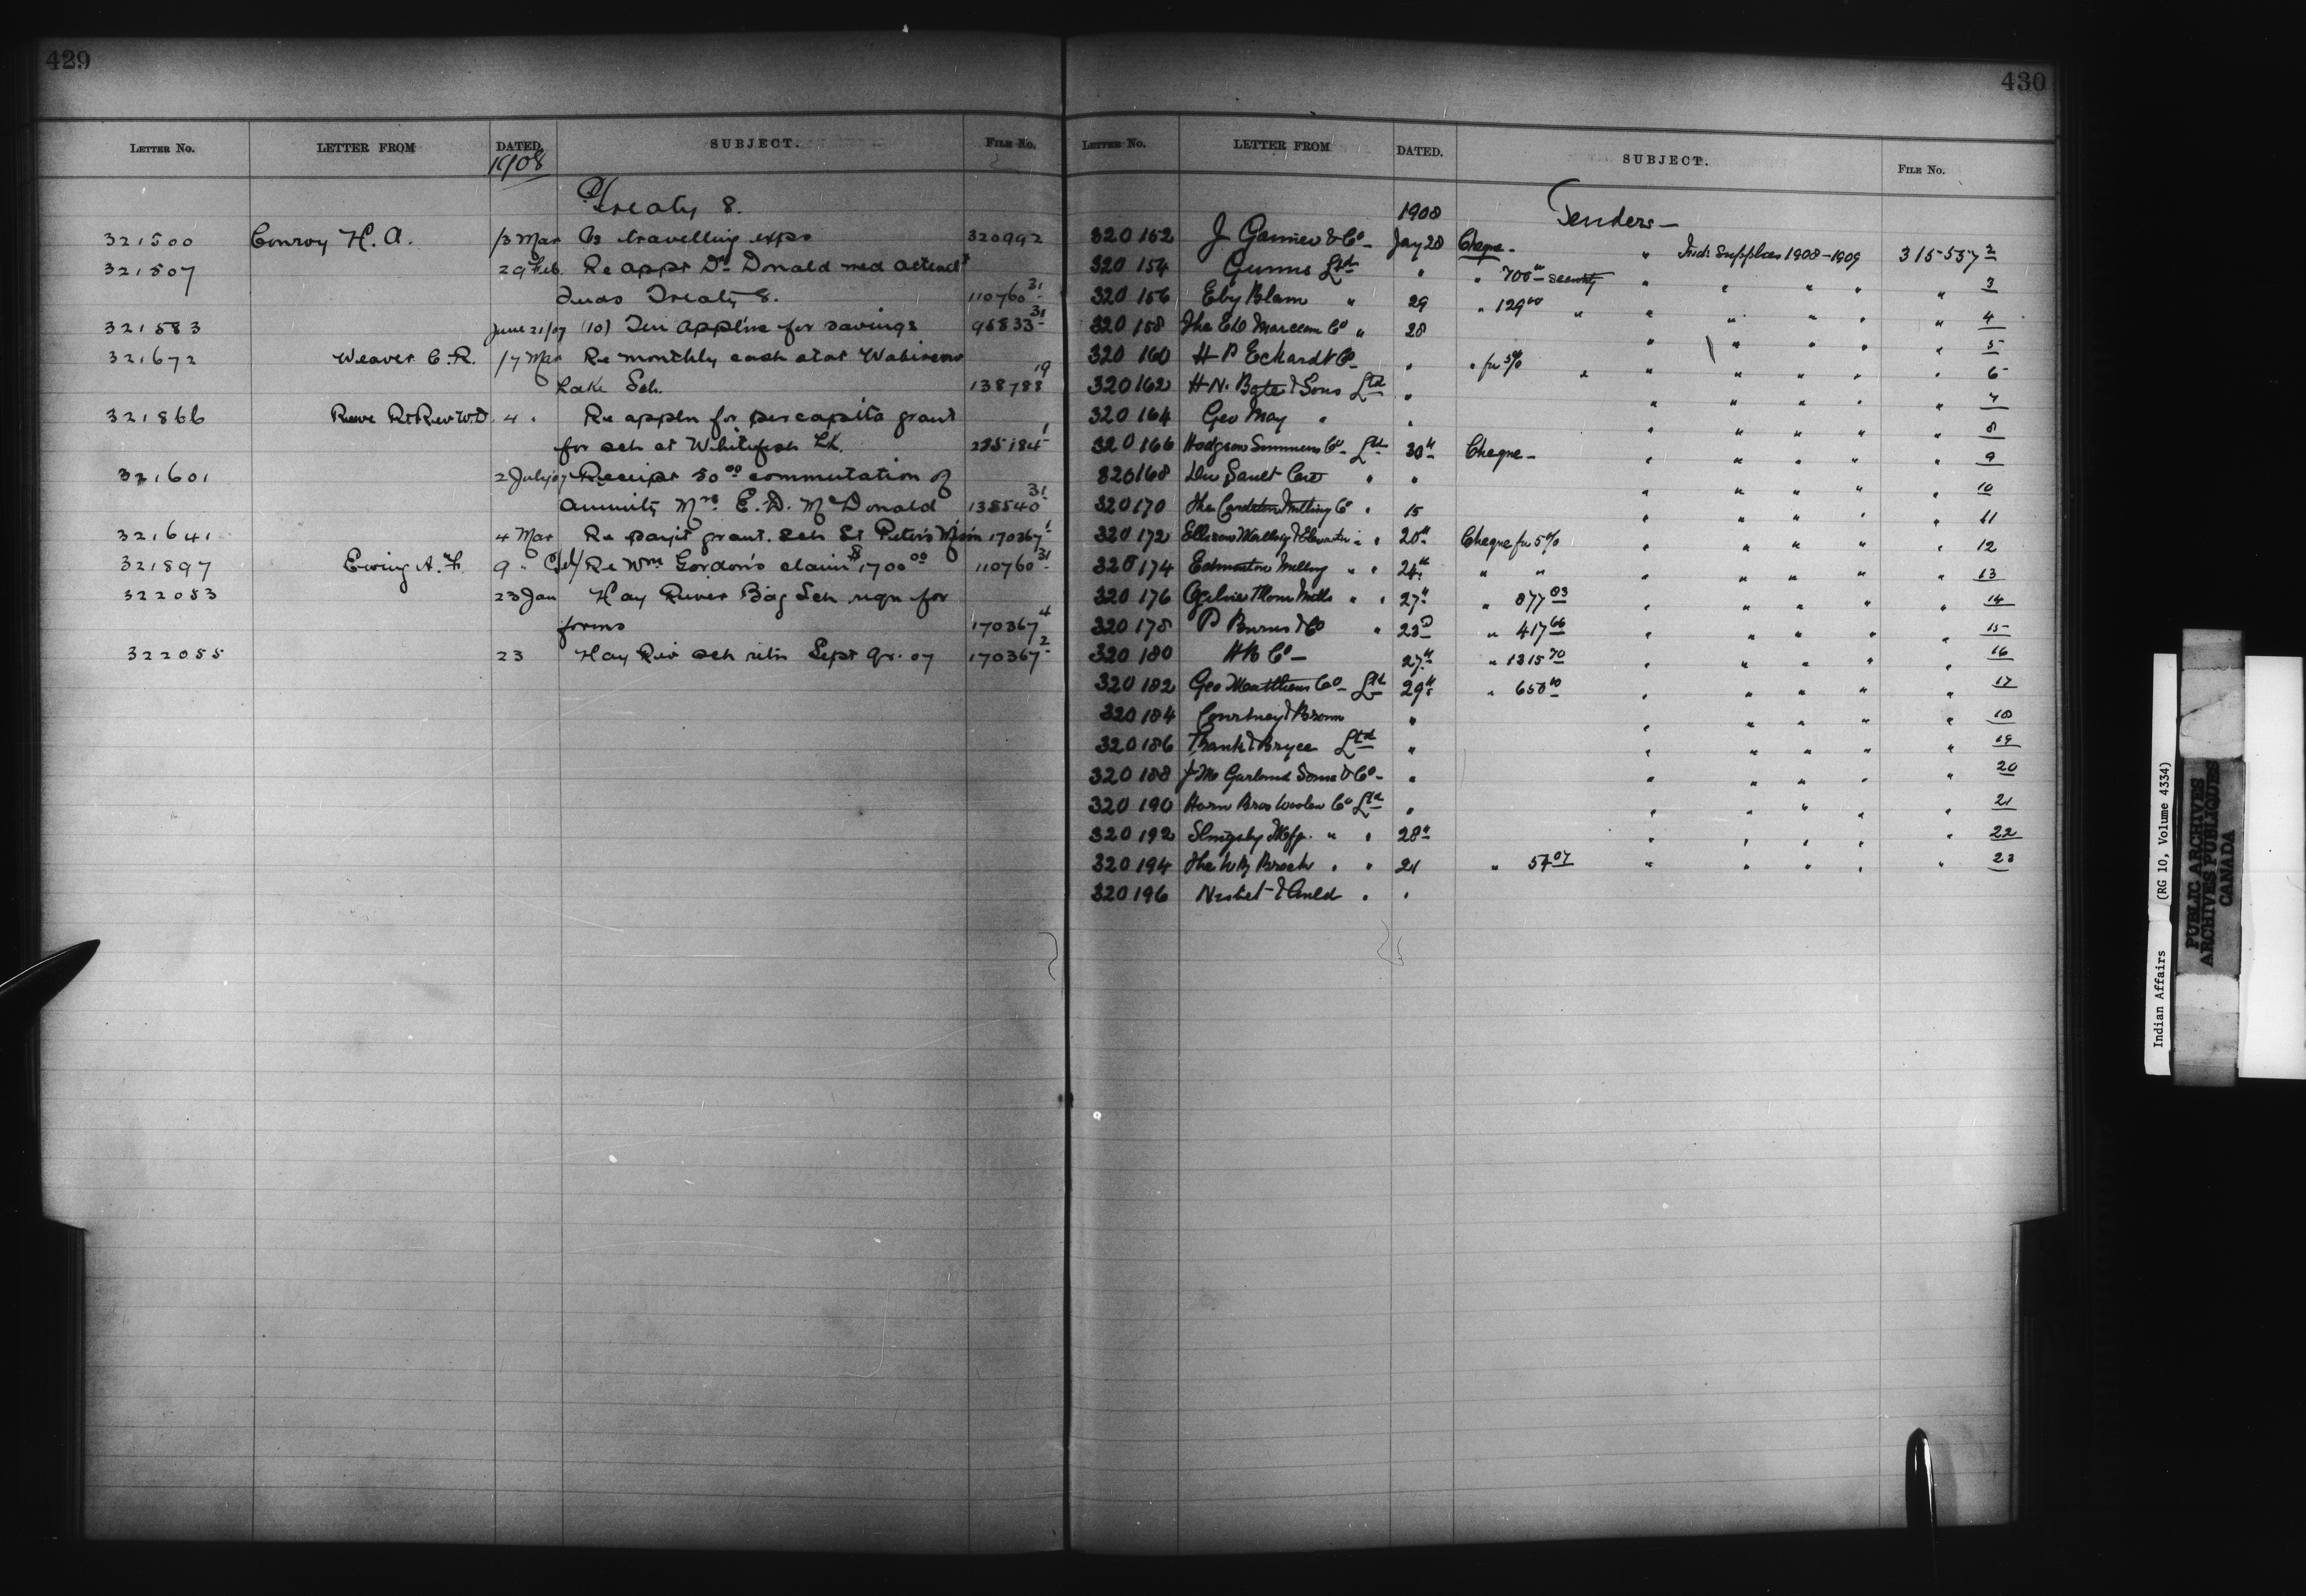 429
LETTER NO. LETTER FROM DATED. SUBJECT. FILE NO.
1908
Treaty 8.
321500 Conroy H. A. 13 Mar travelling exps 320992
321507 29 Feb. Re appt Dr Donald med attendt
Inds Treaty 8. 110760 31
321583 June 21/07 (10) Ten applns for savings 96833 31
321672 Weaver C. R. 17 Mar Re monthly cash stat Wabiscow
Lake Sch. 138788 19
321866 Reeve Rt Rev W.D. 4 " Re appln for per capita grant
for sch at Whitefish Lk. 1
321601 2 July 07 Receipt 50 00 commutation of
annuity Mrs E. D. McDonald 138540 31
321641 4 Mar Re payt grant. sch St Peter's M'sion 170367 1
321897 Ewing A. F. 9 " Re Wm Gordon's claim $1700 00 110760 31
322053 23 Jan Hay River Bdg Sch reqn for
forms 170367 4
322055 23 Hay Riv sch retn Sept qr. 07 170367 2
430
LETTER NO. LETTER FROM DATED. SUBJECT. FILE NO.
1908 Tenders —
320152 J Garnier & Co Jay 28 Cheque - " Ind: Supplies 1908-1909 315557 2
320154 Gunns Ltd " " 700 00 security " " " " " 3
320156 Eby Blain " 29 " 129 00 " " " " " " 4
320158 The Marceau Co " 28 " " " " " 5
320160 H P Eckardt Co " " for 5% " " " " " " 6
320162 H. N. Bate & Sons Ltd " " " " " " 7
320164 Geo May " " " " " " " 8
320166 Hodgson Sumner Co Ltd 30th Cheque - " " " " " 9
320168 Sault " " " " " " " 10
320170 The Milling Co " 15 " " " " " 11
320172 Ellison Milling & Elevator " " 20th Cheque for 5% " " " " " 12
320174 Edmonton Milling " " 24th " " " " " " " 13
320176 Ogilvie Flour Mills " " 27th " 877 83 " " " " " 14
320178 P Burns & Co " 23d " 417 66 " " " " " 15
320180 H B Co — 27th " 1315 70 " " " " " 16
320182 Geo Matthews Co - Ltd 29th " 650 00 " " " " " 17
320184 Courtney & " " " " " " 18
320186 & Bryce Ltd " " " " " " 19
320188 J M Garland Sons & Co - " " " " " " 20
320190 Horn Bros Woolen Co Ltd " " " " " " 21
320192 Slingsby Mfg. " " 28th " " " " " 22
320194 The W R Brock " " 24 " 57 07 " " " " " 23
320196 Nisbet & Auld " "
Indian Affairs (RG 10, Volume 4334)
PUBLIC ARCHIVES
ARCHIVES PUBLIQUES
CANADA